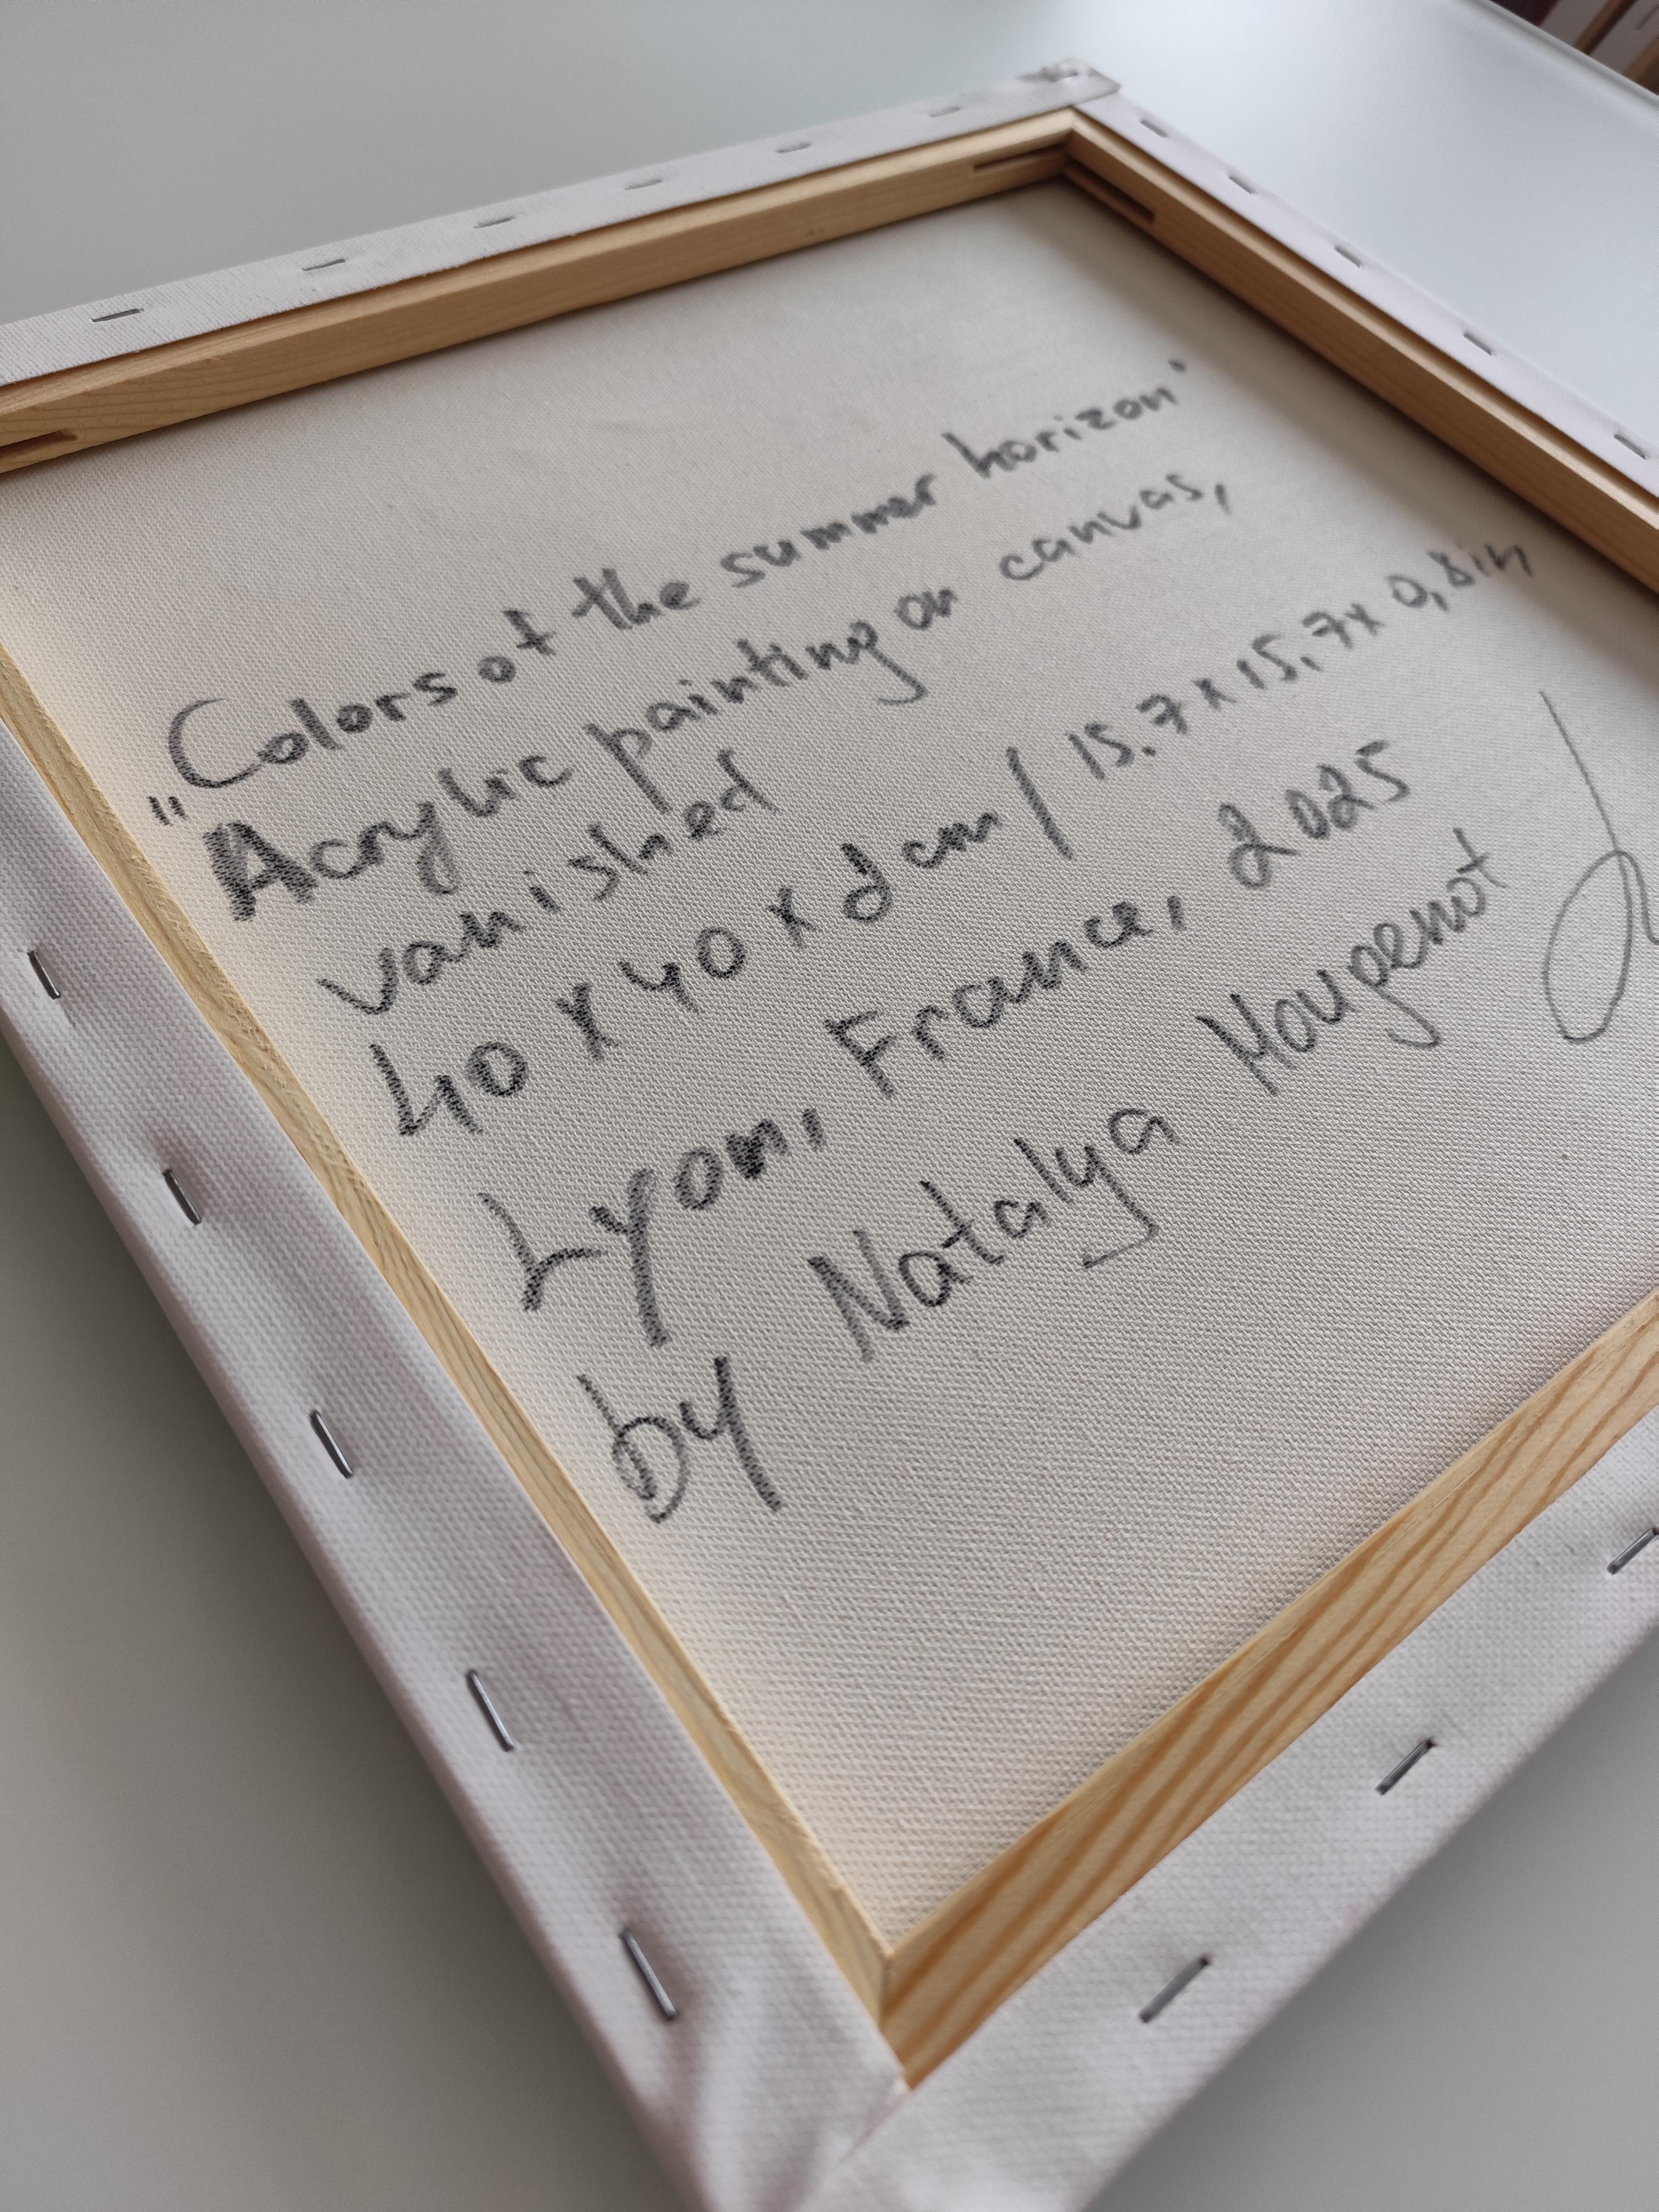 „Colors of the summer horizon"
Acrylic painting on canvas,
vanished
40 x 40 x 2 cm / 15.7 x 15.7 x 0,8 in
Lyon, France, 2025
by Natalya Mougenot